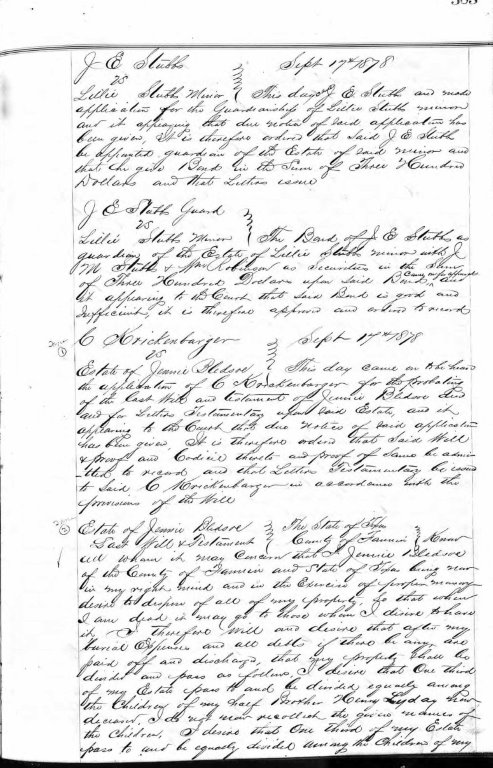 J E Stubbs Sept 17th 1878
vs
Lillie Stubbs Minor This day J. E Stubb and made
application for the Guardianship of Lillie Stubbs minor
and it appearing that due notice of said application has
been given, It is therefore ordered that said J E Stubb
be appointed guardian of the Estate of said minor and
that he give Bond in the Sum of Three Hundred
Dollars and that Letters issue
J E Stubbs Guard
vs
Lillie Stubbs Minor The Bond of J E Stubbs as
guardian of the Estate of Lillie Stubbs minor with J
M Stubbs & Wm Robinson as Securities in the Sum
of Three Hundred Dollars upon said Bond, and
it appearing to the Court that said Bond is good and
sufficient, it is therefore approved and ordered to record
C Krickenbarger Sept 17th 1878
vs
Estate of Jennie Bledsoe This day came on to be heard
the application of C Krickenbarger for the probating
of the Last Will and testament of Jennie Bledsoe Decd
and for Letters Testamentary upon said Estate, and it
appearing to the Court that due notice of said application
has been given It is therefore ordered that said Will
& proof and Codicil thereto and proof of same be admit-
-ted to record and that Letters Testamentary be issued
to said C Krickenbarger in accordance with the
provisions of the Will
Estate of Jennie Bledsoe The State of Texas
Last Will & Testament County of Fannin Know
all whom it may concern that I Jennie Bledsoe
of the County of Fannin and State of Texas being now
in my right mind and in the Exercise of proper memory
desire to dispose of all of my property, so that when
I am dead it may go to those whom I desire to have
it, I therefore Will and desire that after my
burial Expenses and all debts if there be any are
paid off and discharged, that my property shall be
divided and pass as follows, I desire that One third
of my Estate pass to and be divided equally among
the Children of my half Brother Henry Lyday now
deceased, I do not now recollect the given names of
the Children, I desire that One third of my Estate
pass to and be equally divided among the Children of my